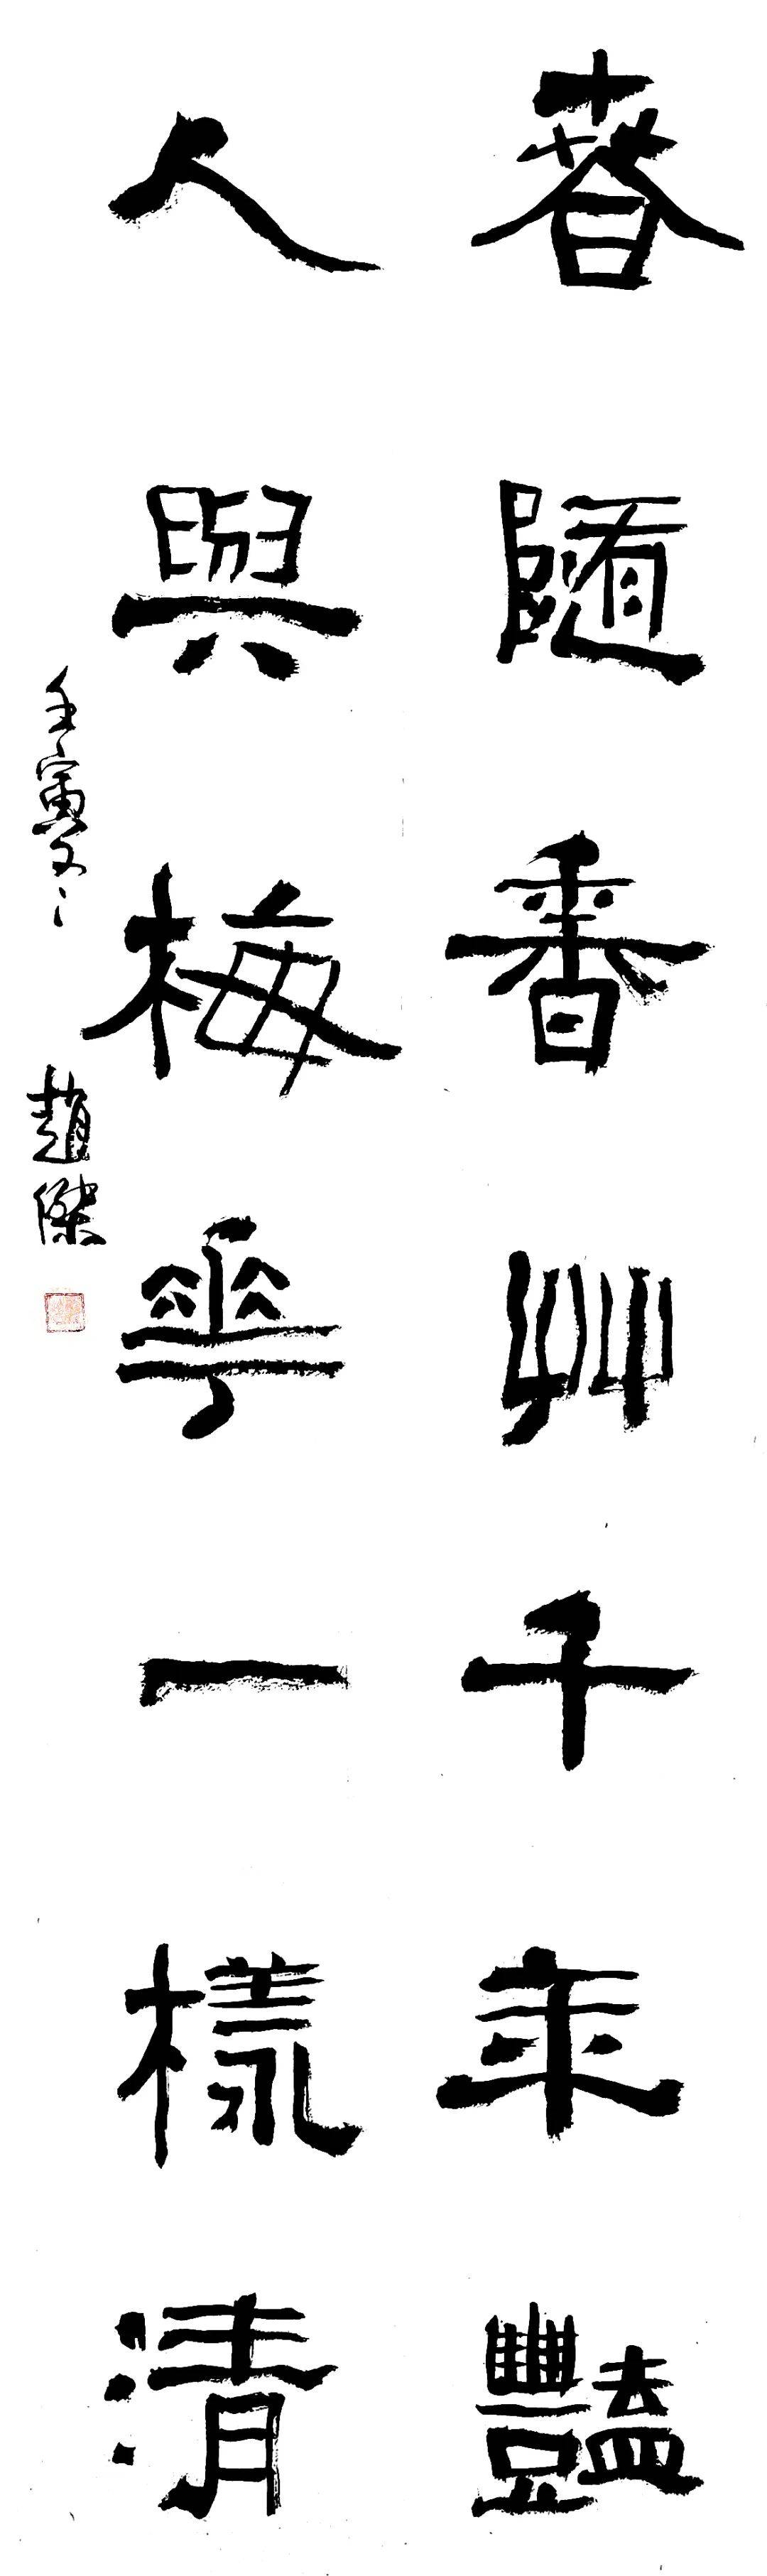 春隨香艸千年豔
人與梅華一樣清
壬寅冬 趙傑